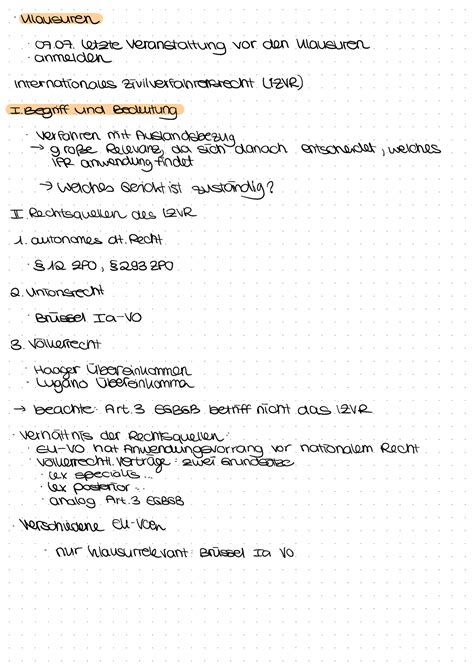 · Klausuren
· 07.07. letzte Veranstaltung vor den Klausuren
· anmelden
internationales Zivilverfahrensrecht (IZVR)
I. Begriff und Bedeutung
· Verfahren mit Auslandsbezug
→ große Relevanz, da sich danach entscheidet, welches
IPR anwendung findet
→ welches Gericht ist zuständig?
II. Rechtsquellen des IZVR
1. autonomes dt. Recht
· § 12 ZPO, § 293 ZPO
2. Unionsrecht
· Brüssel Ia-VO
3. Völkerrecht
· Haager Übereinkommen
· Lugano Übereinkomma
→ beachte: Art. 3 EGBGB betriff nicht das IZVR
· Verhältnis der Rechtsquellen:
· EU-VO hat Anwendungsvorrang vor nationalem Recht
· Völkerrechtl. Verträge: zwei Grundsätze
· lex specialis...
· lex posterior...
· analog Art. 3 EGBGB
· Verschiedene EU-VOen
· nur klausurrelevant: Brüssel Ia VO